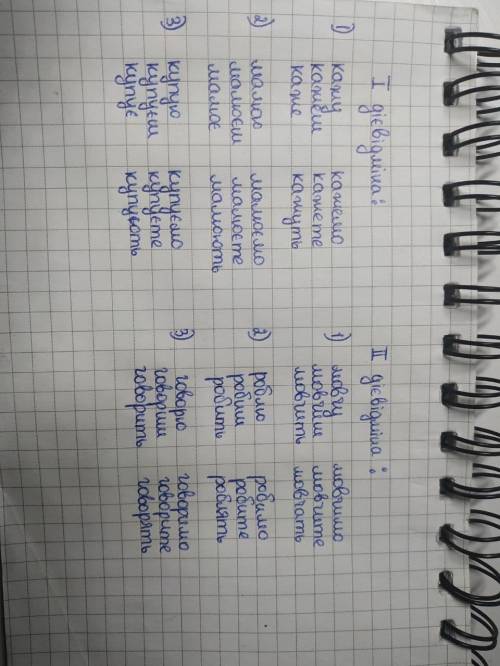 I дієвідміна:
1) кажу кажемо
кажеш кажете
каже кажуть
2) малюю малюємо
малюєш малюєте
малює малюють
3) купую купуємо
купуєш купуєте
купує купують
II дієвідміна:
1) мовчу мовчимо
мовчиш мовчите
мовчить мовчать
2) роблю робимо
робиш робите
робить роблять
3) говорю говоримо
говориш говорите
говорить говорять